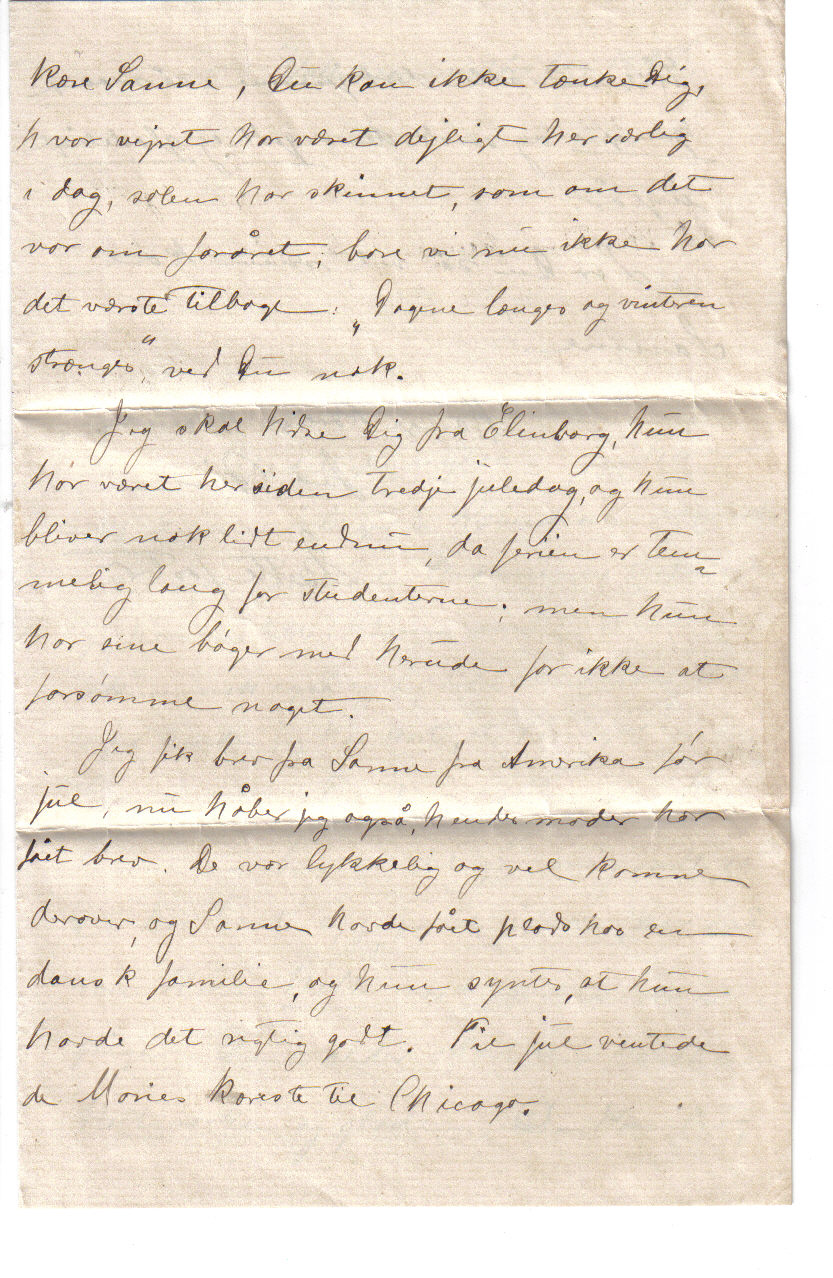 Kære Sanne, Du kan ikke tænke Dig,
hvor vejret har været dejligt her særlig
i dag, solen har skinnet, som om det
var om foråret; bare vi nu ikke har
det værste tilbage: "Dagene længes og vinteren
strænges", ved Du nok.
Jeg skal hilse Dig fra Elinborg, hun
har været her siden tredje juledag, og hun
bliver nok lidt endnu, da ferien er tem=
melig lang for studenterne; men hun
har sine bøger med herude for ikke at
forsømme noget.
Jeg fik brev fra Sanne fra Amerika før
jul, nu håber jeg også, hendes moder har
fået brev. De var lykkelig og vel komne
derover, og Sanne havde fået plads hos en
dansk familie, og hun syntes, at hun
havde det rigtig godt. Til jul ventede
de Maries kæreste til Chicago.